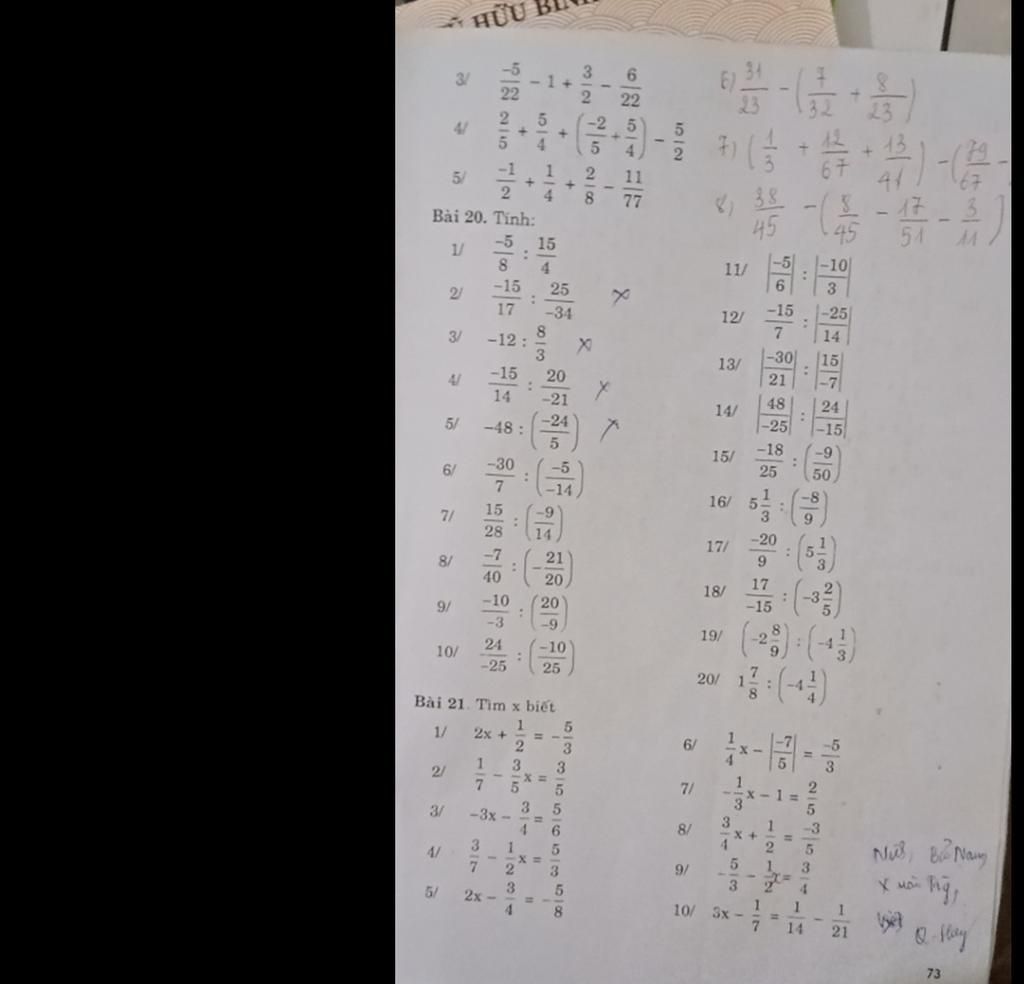 HỮU BÌNH
3/ \frac{-5}{22} - 1 + \frac{3}{2} - \frac{6}{22}
4/ \frac{2}{5} + \frac{5}{4} + \left(\frac{-2}{5} + \frac{5}{4}\right) - \frac{5}{2}
5/ \frac{-1}{2} + \frac{1}{4} + \frac{2}{8} - \frac{11}{77}
6) \frac{31}{23} - \left(\frac{7}{32} + \frac{8}{23}\right)
7) \left(\frac{1}{3} + \frac{12}{67} + \frac{13}{41}\right) - \left(\frac{79}{67} -
8) \frac{38}{45} - \left(\frac{8}{45} - \frac{17}{51} - \frac{3}{11}\right)
Bài 20. Tính:
1/ \frac{-5}{8} : \frac{15}{4}
2/ \frac{-15}{17} : \frac{25}{-34} x
3/ -12 : \frac{8}{3} x
4/ \frac{-15}{14} : \frac{20}{-21} x
5/ -48 : \left(\frac{-24}{5}\right)
6/ \frac{-30}{7} : \left(\frac{-5}{-14}\right)
7/ \frac{15}{28} : \left(\frac{-9}{14}\right)
8/ \frac{-7}{40} : \left(-\frac{21}{20}\right)
9/ \frac{-10}{-3} : \left(\frac{20}{-9}\right)
10/ \frac{24}{-25} : \left(\frac{-10}{25}\right)
11/ \left|\frac{-5}{6}\right| : \left|\frac{-10}{3}\right|
12/ \frac{-15}{7} : \left|\frac{-25}{14}\right|
13/ \left|\frac{-30}{21}\right| : \left|\frac{15}{-7}\right|
14/ \left|\frac{48}{-25}\right| : \left|\frac{24}{-15}\right|
15/ \frac{-18}{25} : \left(\frac{-9}{50}\right)
16/ 5\frac{1}{3} : \left(\frac{-8}{9}\right)
17/ \frac{-20}{9} : \left(5\frac{1}{3}\right)
18/ \frac{17}{-15} : \left(-3\frac{2}{5}\right)
19/ \left(-2\frac{8}{9}\right) : \left(-4\frac{1}{3}\right)
20/ 1\frac{7}{8} : \left(-4\frac{1}{4}\right)
Bài 21. Tìm x biết
1/ 2x + \frac{1}{2} = -\frac{5}{3}
2/ \frac{1}{7} - \frac{3}{5}x = \frac{3}{5}
3/ -3x - \frac{3}{4} = \frac{5}{6}
4/ \frac{3}{7} - \frac{1}{2}x = \frac{5}{3}
5/ 2x - \frac{3}{4} = -\frac{5}{8}
6/ \frac{1}{4}x - \left|\frac{-7}{5}\right| = \frac{-5}{3}
7/ -\frac{1}{3}x - 1 = \frac{2}{5}
8/ \frac{3}{4}x + \frac{1}{2} = \frac{-3}{5}
9/ -\frac{5}{3} - \frac{1}{2}x = \frac{3}{4}
10/ 3x - \frac{1}{7} = \frac{1}{14} - \frac{1}{21}
73